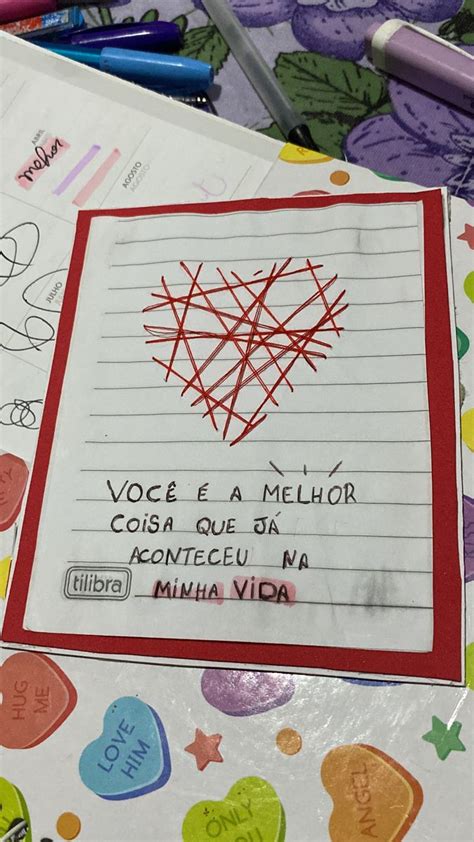 ABRIL
melhor
AGOSTO
AGOSTO
JULHO
VOCÊ É A MELHOR
COISA QUE JÁ
ACONTECEU NA
tilibra
MINHA VIDA
HUG
ME
LOVE
HIM
ONLY
ANGEL